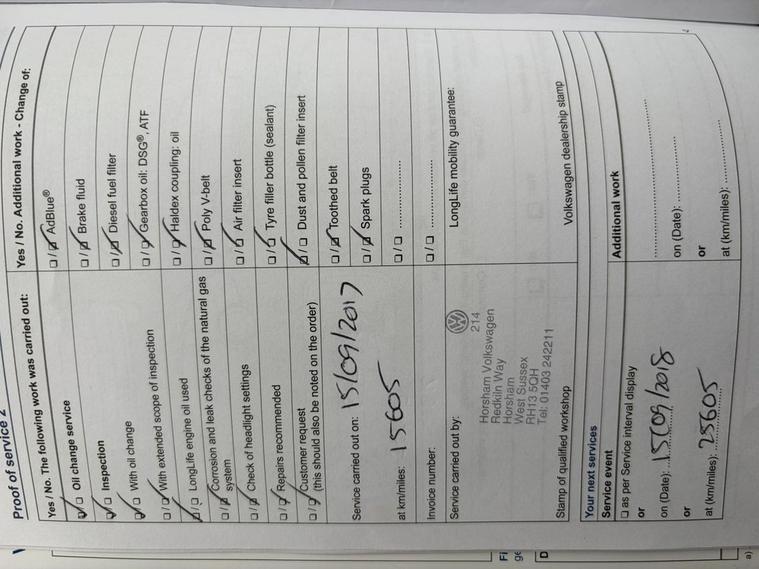 Proof of service 2
Yes / No. The following work was carried out:
Oil change service
Inspection
With oil change
With extended scope of inspection
LongLife engine oil used
Corrosion and leak checks of the natural gas
system
Check of headlight settings
Repairs recommended
Customer request
(this should also be noted on the order)
Service carried out on: 15/09/2017
at km/miles: 15605
Invoice number:
Service carried out by:
214
Horsham Volkswagen
Redkiln Way
Horsham
West Sussex
RH13 5QH
Tel: 01403 242211
Stamp of qualified workshop
Yes / No. Additional work - Change of:
AdBlue®
Brake fluid
Diesel fuel filter
Gearbox oil: DSG®, ATF
Haldex coupling: oil
Poly V-belt
Air filter insert
Tyre filler bottle (sealant)
Dust and pollen filter insert
Toothed belt
Spark plugs
LongLife mobility guarantee:
Volkswagen dealership stamp
Your next services
Service event
as per Service interval display
or
on (Date): 15/09/2018
or
at (km/miles): 25605
Additional work
on (Date):
or
at (km/miles):
Fi
ge
D
a)